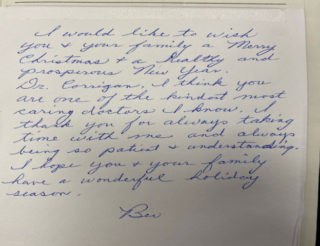 I would like to wish
you & your family a Merry
Christmas & a healthy and
prosperous New Year.
Dr. Corrigan, I think you
are one of the kindest most
caring doctors I know. I
thank you for always taking
time with me and always
being so patient & understanding.
I hope you & your family
have a wonderful holiday
season.
Bev